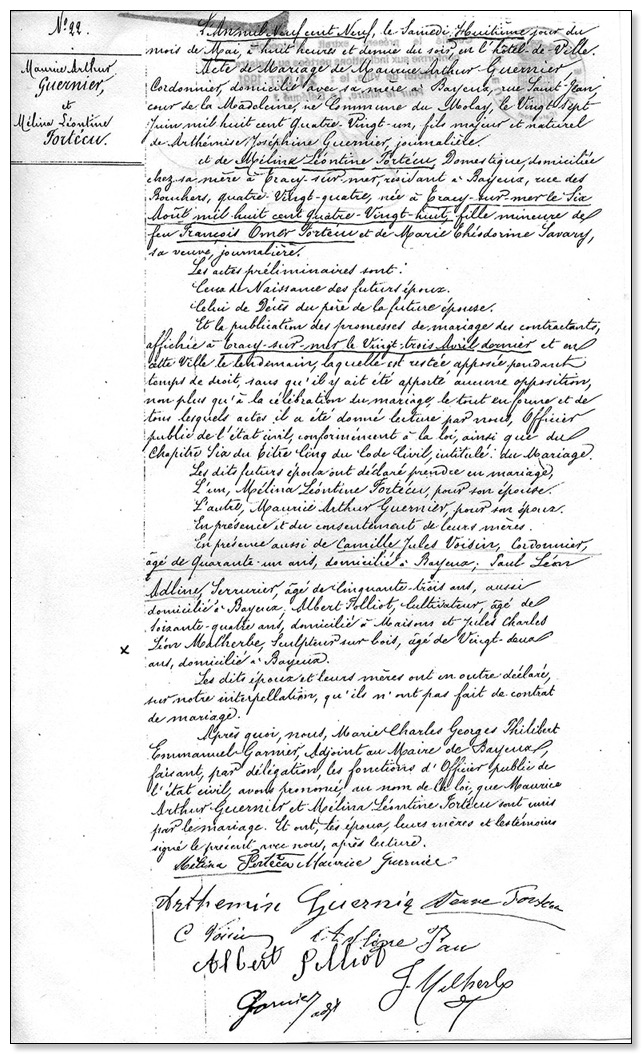 N° 22.
Maurice Arthur
Guernier,
et
Mélina Léontine
Fortécu.
L'An mil Neuf cent Neuf, le Samedi, Huitième jour du
mois de Mai, à huit heures et demie du soir, en l'hôtel-de-Ville.
Acte de Mariage de Maurice Arthur Guernier,
Cordonnier, domicilié avec sa mère à Bayeux, rue Saint-Jean,
cour de la Madeleine, né Commune du Molay, le Vingt sept
Juin mil huit cent Quatre-Vingt-un, fils majeur et naturel
de Arthémise Joséphine Guernier, journalière.
et de Mélina Léontine Fortécu, Domestique, domiciliée
chez sa mère à Tracy-sur-mer, résidant à Bayeux, rue des
Bouchers, quatre-Vingt-quatre, née à Tracy-sur-mer le Six
Août mil huit cent quatre-Vingt-huit, fille mineure de
feu François Omer Fortécu et de Marie Théodorine Savary,
sa veuve, journalière.
Les actes préliminaires sont:
Ceux de Naissance des futurs époux.
Celui de Décès du père de la future épouse.
Et la publication des promesses de mariage des contractants,
affichée à Tracy-sur-mer le Vingt-trois Avril dernier et en
cette Ville le lendemain, laquelle est restée apposée pendant
temps de droit, sans qu'il y ait été apporté aucune opposition,
non plus qu'à la célébration du mariage, le tout en forme et de
tous lesquels actes il a été donné lecture par nous, Officier
public de l'état civil, conformément à la loi, ainsi que du
Chapitre Six du Titre Cinq du Code Civil, intitulé: du Mariage.
Les dits futurs époux ont déclaré prendre en mariage,
L'un, Mélina Léontine Fortécu, pour son épouse.
L'autre, Maurice Arthur Guernier, pour son époux.
En présence et du consentement de leurs mères.
En présence aussi de Camille Jules Voisin, Cordonnier,
âgé de Quarante-un ans, domicilié à Bayeux; Paul Léon
Adline, Serrurier, âgé de Cinquante-trois ans, aussi
domicilié à Bayeux; Albert Polliot, Cultivateur, âgé de
Soixante-quatre ans, domicilié à Maisons et Jules Charles
Léon Malherbe, Sculpteur sur bois, âgé de Vingt-deux
x
ans, domicilié à Bayeux.
Les dits époux et leurs mères ont en outre déclaré,
sur notre interpellation, qu'ils n'ont pas fait de contrat
de mariage.
Après quoi, nous, Marie Charles Georges Philibert
Emmanuel Garnier, Adjoint au Maire de Bayeux,
faisant, par délégation, les fonctions d'Officier public de
l'état civil, avons prononcé, au nom de la loi, que Maurice
Arthur Guernier et Mélina Léontine Fortécu sont unis
par le mariage. Et ont, les époux, leurs mères et les témoins
signé le présent avec nous, après lecture.
Mélina Fortécu Maurice Guernier
Arthemise Guernier Veuve
C Voisin
Albert Pelliot
J Malherbe
Garnier adjt